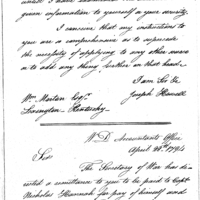 given information to yourself & your security.
I conceive that any instructions to
you are a comprehensive or to supersede
the necessity of applying to any other means
or to add any thing further on that head.
I am Sir &c
Joseph Howell
Wm Morton Esqr
Lexington Kentucky
W. D. Accountants Office
April 24th 1794
Sir
The Secretary of War has di-
rected a remittance to you to be paid to Capt
Nicholas for pay of himself and